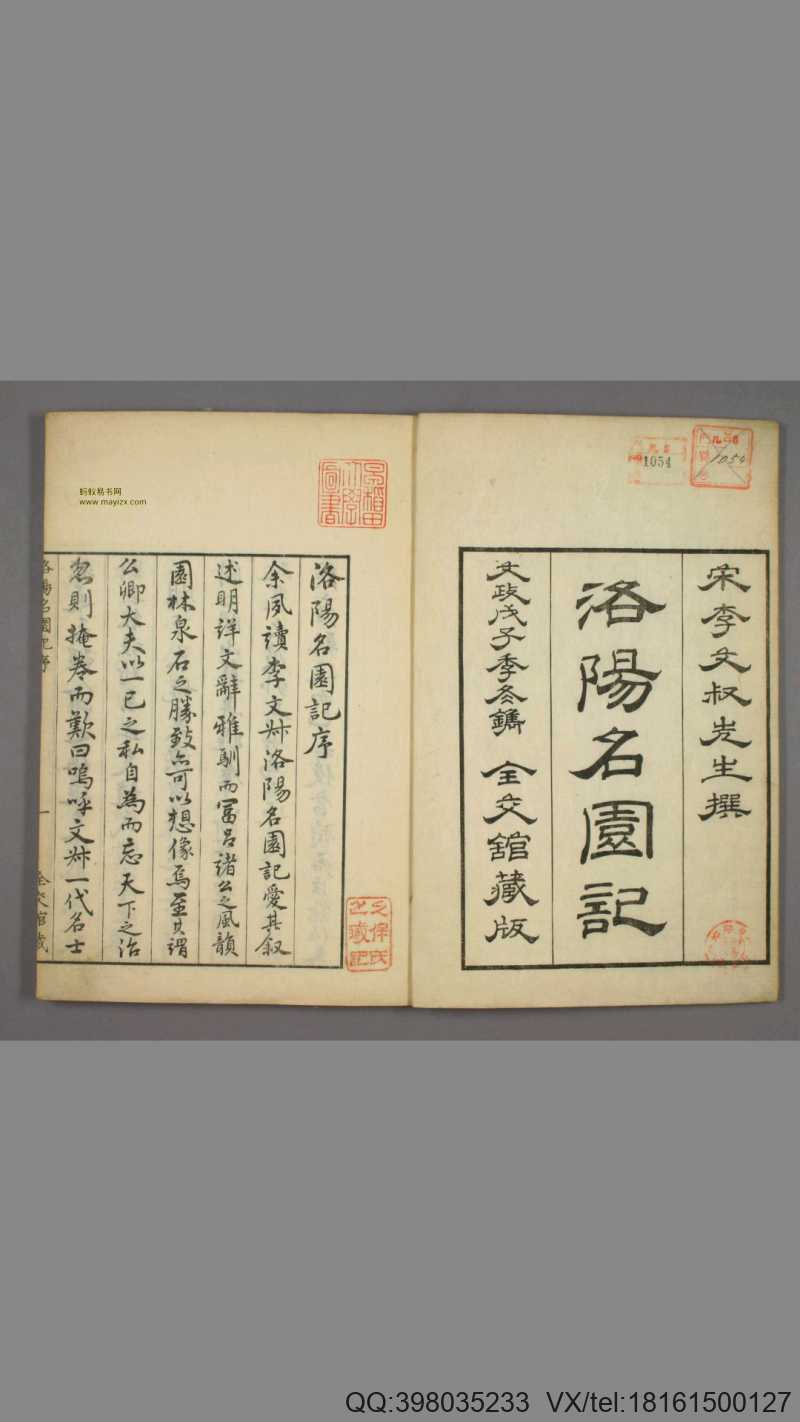 宋李文叔先生撰
洛陽名園記
文政戊子季冬鐫 全交館藏版
1054
1054
早稻田大學圖書
洛陽名園記序
余夙讀李文叔洛陽名園記愛其叙
述明詳文辭雅馴而冨呂諸公之風韻
園林泉石之勝致亦可以想像焉至其謂
公卿大夫以一已之私自為而忘天下之治
忽則掩卷而歎曰嗚呼文叔一代名士
洛陽名園記序 一 全交館藏
蚂蚁易书网
www.mayizx.com
QQ:398035233 VX/tel:18161500127